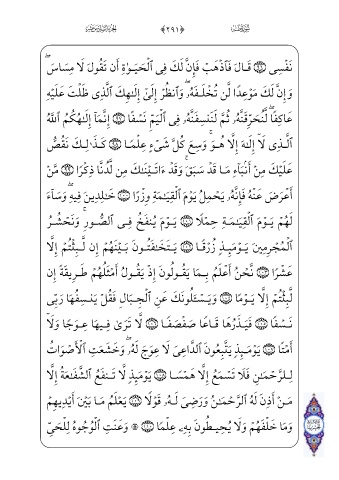 الجزء السادس عشر ﴿٢٩١﴾ سورة طه
نَفْسِى قَالَ فَٱذْهَبْ فَإِنَّ لَكَ فِى ٱلْحَيَوٰةِ أَن تَقُولَ لَا مِسَاسَ ۖ
وَإِنَّ لَكَ مَوْعِدًا لَّن تُخْلَفَهُۥ ۖ وَٱنظُرْ إِلَىٰٓ إِلَٰهِكَ ٱلَّذِى ظَلْتَ عَلَيْهِ
عَاكِفًا ۖ لَّنُحَرِّقَنَّهُۥ ثُمَّ لَنَنسِفَنَّهُۥ فِى ٱلْيَمِّ نَسْفًا إِنَّمَآ إِلَٰهُكُمُ ٱللَّهُ
ٱلَّذِى لَآ إِلَٰهَ إِلَّا هُوَ ۚ وَسِعَ كُلَّ شَىْءٍ عِلْمًا كَذَٰلِكَ نَقُصُّ
عَلَيْكَ مِنْ أَنۢبَآءِ مَا قَدْ سَبَقَ ۚ وَقَدْ ءَاتَيْنَٰكَ مِن لَّدُنَّا ذِكْرًا مَّنْ
أَعْرَضَ عَنْهُ فَإِنَّهُۥ يَحْمِلُ يَوْمَ ٱلْقِيَٰمَةِ وِزْرًا خَٰلِدِينَ فِيهِ ۖ وَسَآءَ
لَهُمْ يَوْمَ ٱلْقِيَٰمَةِ حِمْلًا يَوْمَ يُنفَخُ فِى ٱلصُّورِ ۚ وَنَحْشُرُ
ٱلْمُجْرِمِينَ يَوْمَئِذٍ زُرْقًا يَتَخَٰفَتُونَ بَيْنَهُمْ إِن لَّبِثْتُمْ إِلَّا
عَشْرًا نَّحْنُ أَعْلَمُ بِمَا يَقُولُونَ إِذْ يَقُولُ أَمْثَلُهُمْ طَرِيقَةً إِن
لَّبِثْتُمْ إِلَّا يَوْمًا وَيَسْـَٔلُونَكَ عَنِ ٱلْجِبَالِ فَقُلْ يَنسِفُهَا رَبِّى
نَسْفًا فَيَذَرُهَا قَاعًا صَفْصَفًا لَّا تَرَىٰ فِيهَا عِوَجًا وَلَآ
أَمْتًا يَوْمَئِذٍ يَتَّبِعُونَ ٱلدَّاعِىَ لَا عِوَجَ لَهُۥ ۖ وَخَشَعَتِ ٱلْأَصْوَاتُ
لِلرَّحْمَٰنِ فَلَا تَسْمَعُ إِلَّا هَمْسًا يَوْمَئِذٍ لَّا تَنفَعُ ٱلشَّفَٰعَةُ إِلَّا
مَنْ أَذِنَ لَهُ ٱلرَّحْمَٰنُ وَرَضِىَ لَهُۥ قَوْلًا يَعْلَمُ مَا بَيْنَ أَيْدِيهِمْ
وَمَا خَلْفَهُمْ وَلَا يُحِيطُونَ بِهِۦ عِلْمًا ۞ وَعَنَتِ ٱلْوُجُوهُ لِلْحَىِّ